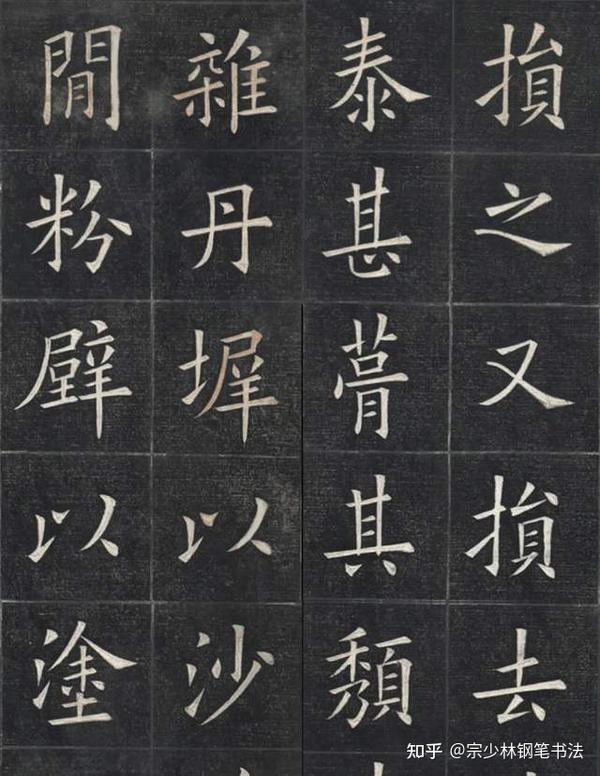 損之又損去
泰甚葺其頽
雜丹墀以沙
閒粉壁以塗
知乎 @宗少林钢笔书法